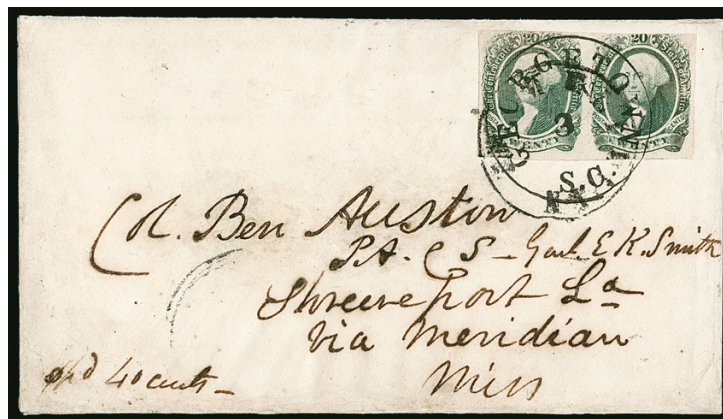 20 20
GEORGETOWN
3
TWENTY TWENTY
S.C.
Col. Ben Auston
P.A. C S - Genl E K. Smith
Shreeveport La
Via Meridian
Miss
pd 40 cents -